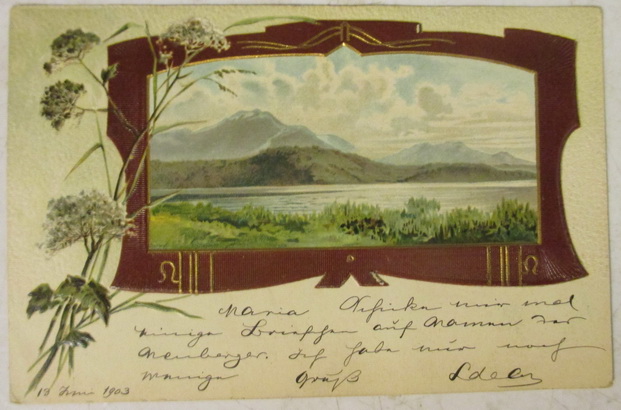 Maria Schicke mir mal
einige Briefchen auf Namen
Neuberger. Ich habe mir noch
wenige Gruß
13 Juni 1903